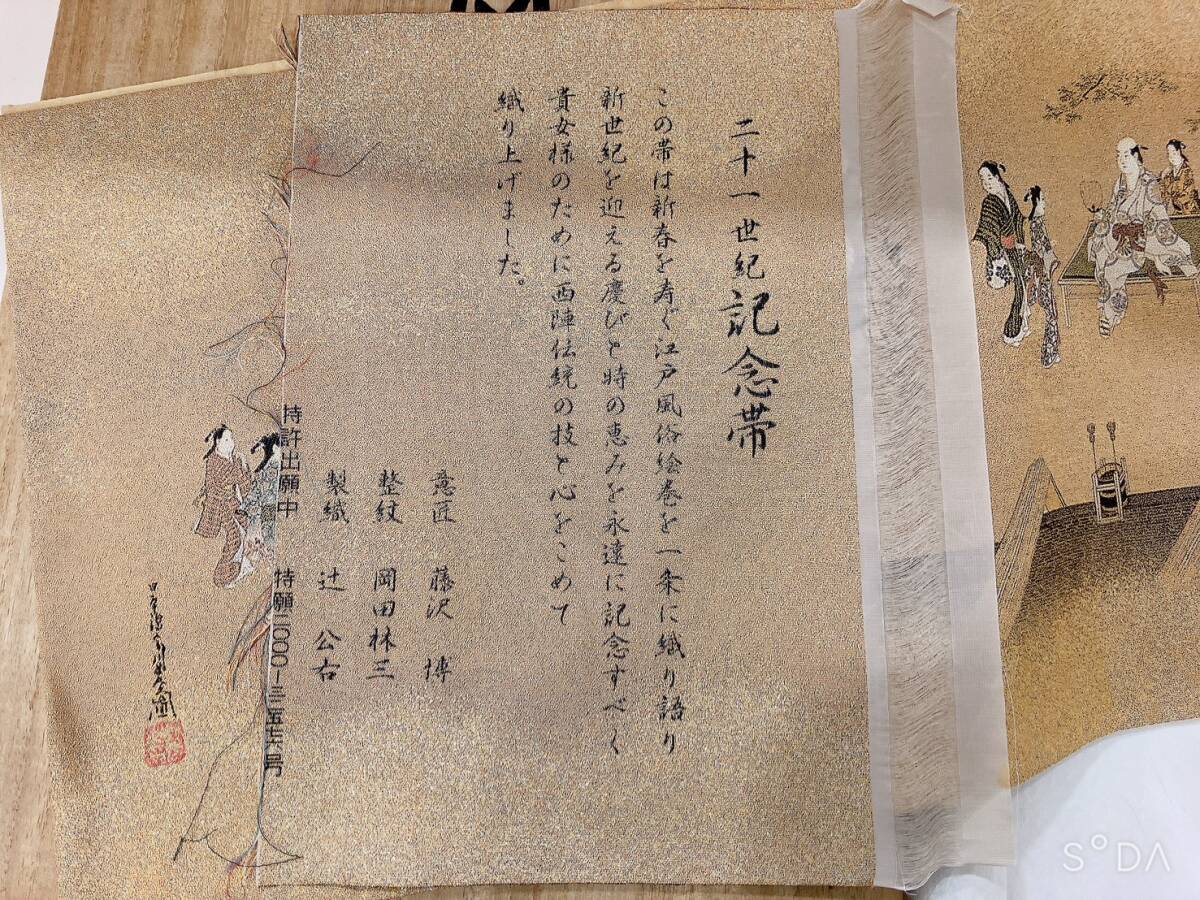 二十一世紀記念帯
この帯は新春を寿ぐ江戸風俗絵巻を一条に織り語り
新世紀を迎える慶びと時の恵みを永遠に記念すべく
貴女様のために西陣伝統の技と心をこめて
織り上げました。
意匠 藤沢 博
整紋 岡田林三
製織 辻 公右
特許出願中 特願二〇〇〇-三二五七六号
SODA